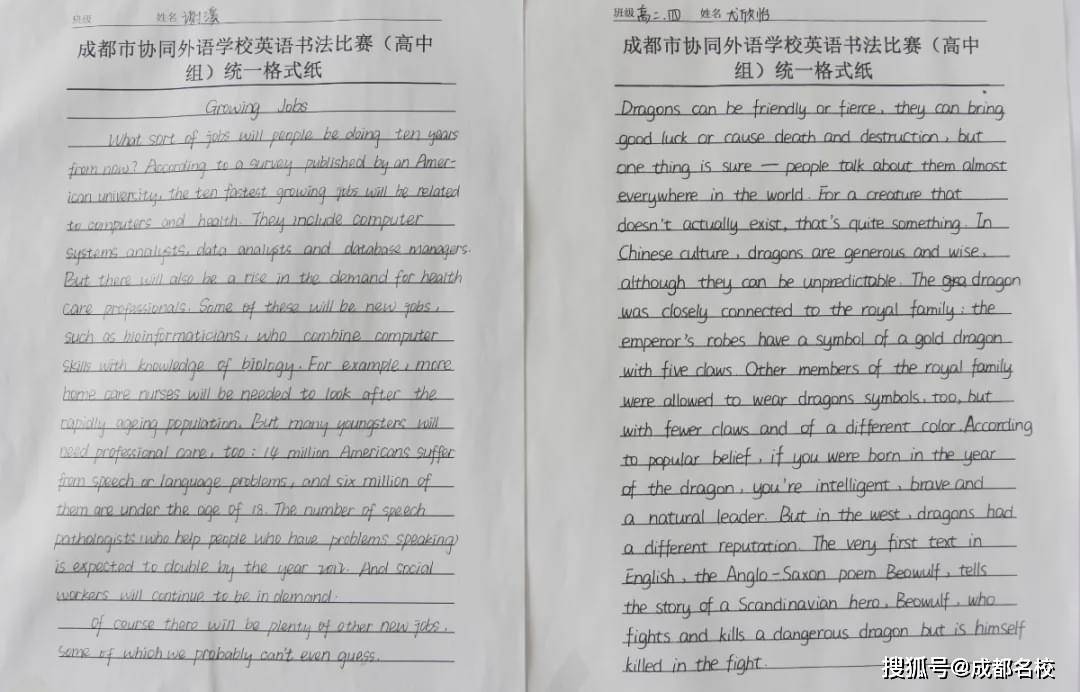 班级 姓名 谢溪
成都市协同外语学校英语书法比赛（高中
组）统一格式纸
Growing Jobs
What sort of jobs will people be doing ten years
from now? According to a survey published by an Amer-
ican university, the ten fastest growing jobs will be related
to computers and health. They include computer
systems analysts, data analysts and database managers.
But there will also be a rise in the demand for health
care professionals. Some of these will be new jobs,
such as bioinformaticians, who combine computer
skills with knowledge of biology. For example, more
home care nurses will be needed to look after the
rapidly ageing population. But many youngsters will
need professional care, too: 14 million Americans suffer
from speech or language problems, and six million of
them are under the age of 18. The number of speech
pathologists (who help people who have problems speaking)
is expected to double by the year 2012. And social
workers will continue to be in demand.
Of course there will be plenty of other new jobs,
some of which we probably can't even guess.
班级 高二.四 姓名 尤欣怡
成都市协同外语学校英语书法比赛（高中
组）统一格式纸
Dragons can be friendly or fierce, they can bring
good luck or cause death and destruction, but
one thing is sure — people talk about them almost
everywhere in the world. For a creature that
doesn't actually exist, that's quite something. In
Chinese culture, dragons are generous and wise,
although they can be unpredictable. The dragon
was closely connected to the royal family: the
emperor's robes have a symbol of a gold dragon
with five claws. Other members of the royal family
were allowed to wear dragons symbols, too, but
with fewer claws and of a different color. According
to popular belief, if you were born in the year
of the dragon, you're intelligent, brave and
a natural leader. But in the west, dragons had
a different reputation. The very first text in
English, the Anglo-Saxon poem Beowulf, tells
the story of a Scandinavian hero, Beowulf, who
fights and kills a dangerous dragon but is himself
killed in the fight.
搜狐号@成都名校